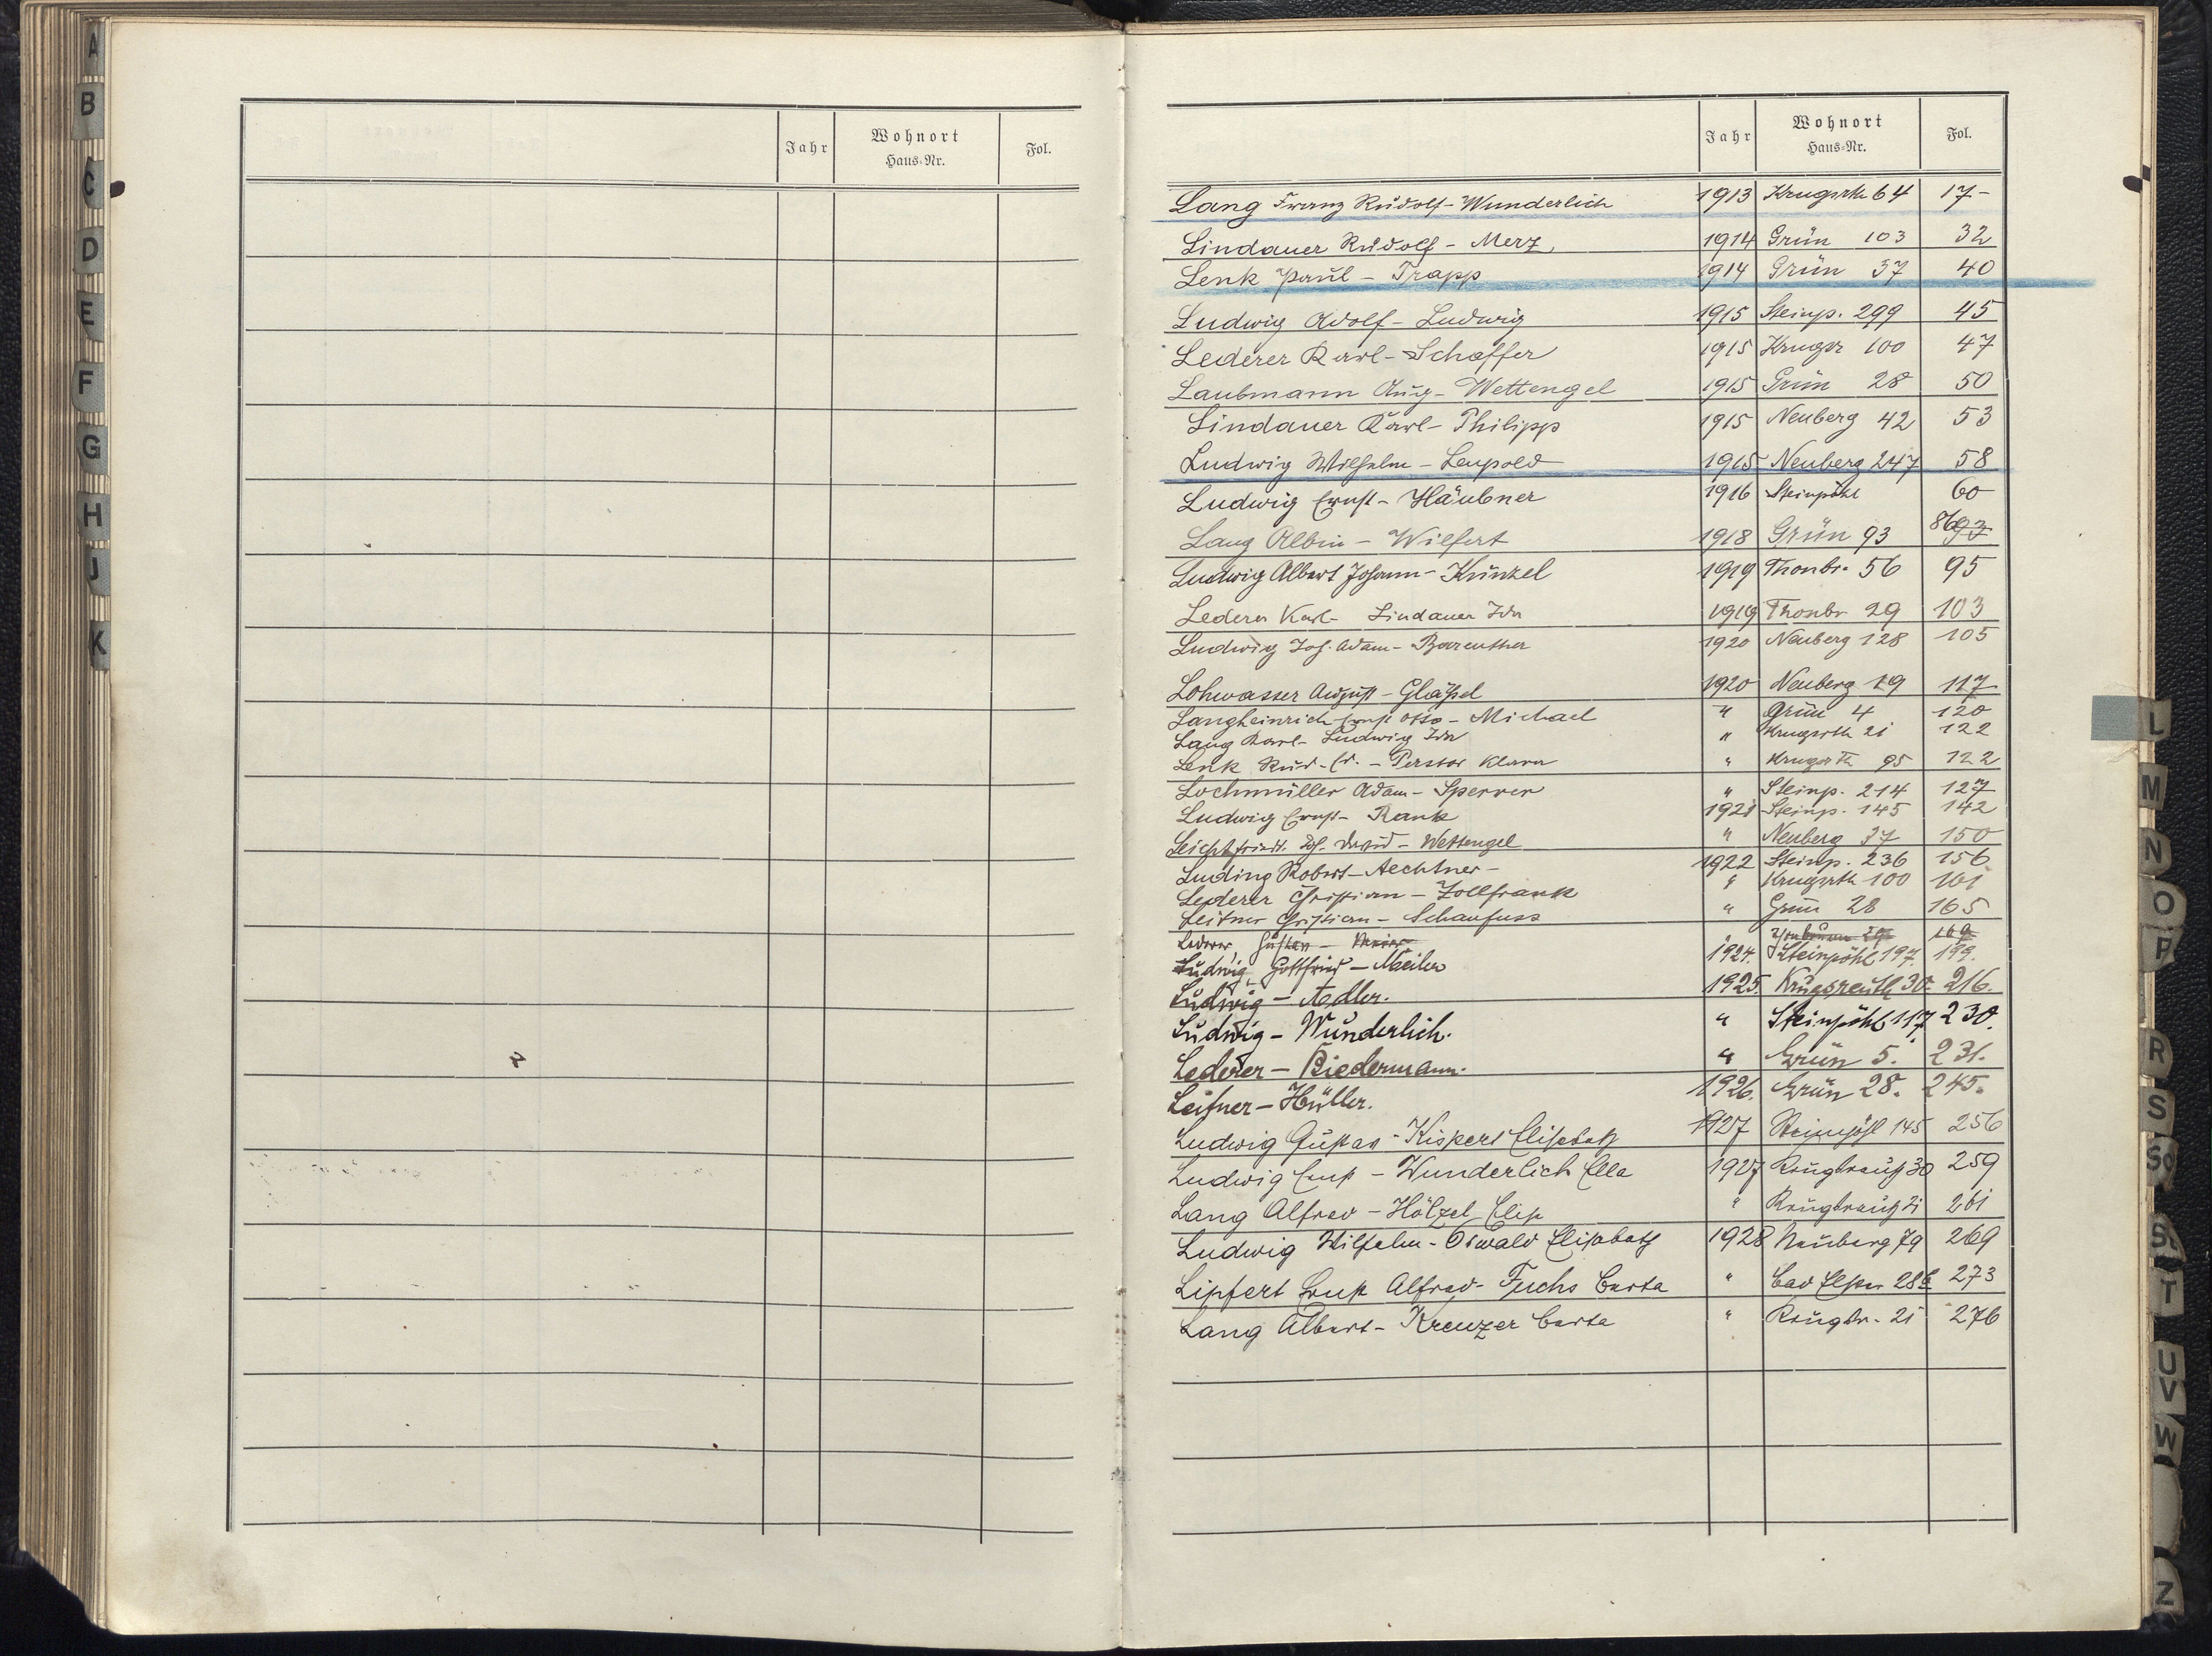 A
B
C
D
E
F
G
H
J
K
Jahr Wohnort Haus-Nr. Fol.
Jahr Wohnort Haus-Nr. Fol.
Lang Franz Rudolf - Wunderlich 1913 Krugsrth 64 17 -
Lindauer Rudolf - Merz 1914 Grün 103 32
Lenk Paul - Trapp 1914 Grün 37 40
Ludwig Adolf - Ludwig 1915 Steinp. 299 45
Lederer Karl - Schaffer 1915 Krugsr 100 47
Laubmann Aug - Wettengel 1915 Grün 28 50
Lindauer Karl - Philipp 1915 Neuberg 42 53
Ludwig Wilhelm - Leupold 1915 Neuberg 247 58
Ludwig Ernst - Häubner 1916 Steinpöhl 60
Lang Albin - Wilfert 1918 Grün 93 86 93
Ludwig Albert Johann - Künzel 1919 Thonbr. 56 95
Lederer Karl - Lindauer Ida 1919 Thonbr 29 103
Ludwig Joh. Adam - Bareuther 1920 Neuberg 128 105
Lohwasser August - Gläßel 1920 Neuberg 19 117
Langheinrich Ernst Otto - Michael " Grün 4 120
Lang Karl - Ludwig Ida " Krugsrth 21 122
Lenk Rud. - Klara " Krugsrth 95 122
Lochmüller Adam - Sperrer " Steinp. 214 127
Ludwig Ernst - Rank 1921 Steinp. 145 142
Leichtfriedt. Joh. David - Wettengel " Neuberg 37 150
Luding Robert - Aechtner - 1922 Steinp. 236 156
Lederer Christian - Zollfrank " Krugsrth 100 161
Leitner Christian - Schaufuss " Grün 28 165
Lederer Gustav - " 29 169
Ludwig Gottfried - Meiler 1924. Steinpöhl 197. 199.
Ludwig - Adler. 1925. Krugsreuth 30. 216.
Ludwig - Wunderlich. " Steinpöhl 117 230.
Lederer - Biedermann. " Grün 5. 231.
Leitner - Hüller. 1926. Grün 28. 245.
Ludwig Gustav - Kispert Elisabeth 1927 Steinpöhl 145 256
Ludwig Ernst - Wunderlich Ella 1927 Krugsreuth 30 259
Lang Alfred - Hölzel Elis " Krugsreuth 21 261
Ludwig Wilhelm - Oswald Elisabeth 1928 Neuberg 79 269
Lipfert Ernst Alfred - Fuchs Berta " Bad Elster 286 273
Lang Albert - Kreuzer Berta " Krugsr. 21 276
L
M
N
O
P
R
S
Sch
St
T
U
V
W
Z